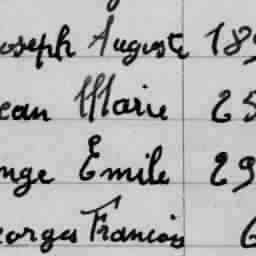 oseph Auguste 189
ean Marie 25
nge Emile 29
eorges Francois 6